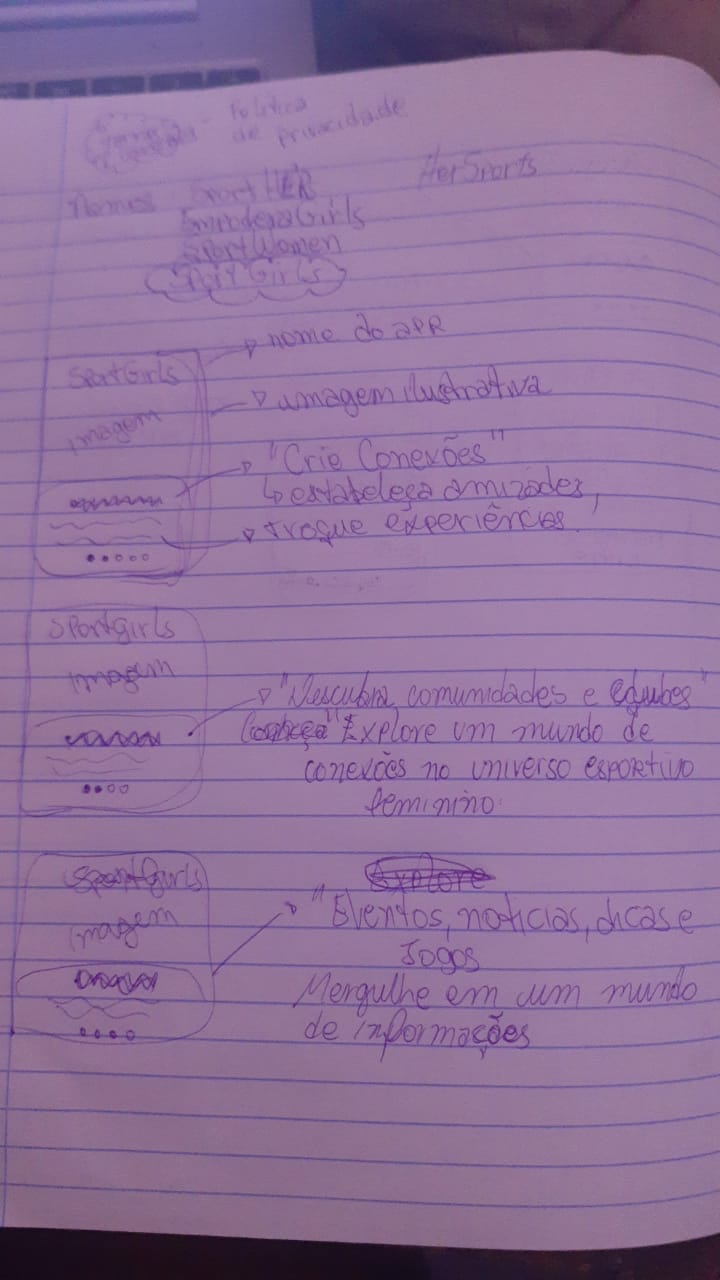 Política
de privacidade
Nomes SportHER HerSports
EmpoderaGirls
SportWomen
SportGirls
nome do app
SportGirls
imagem ilustrativa
imagem
"Crie Conexões"
↳ estabeleça amizades,
troque experiências.
Sportgirls
Imagem
"Descubra comunidades e equipes"
Conheça "Explore um mundo de
conexões no universo esportivo
feminino.
SportGirls
Explore
Imagem
"Eventos, notícias, dicas e
Jogos
Mergulhe em um mundo
de informações